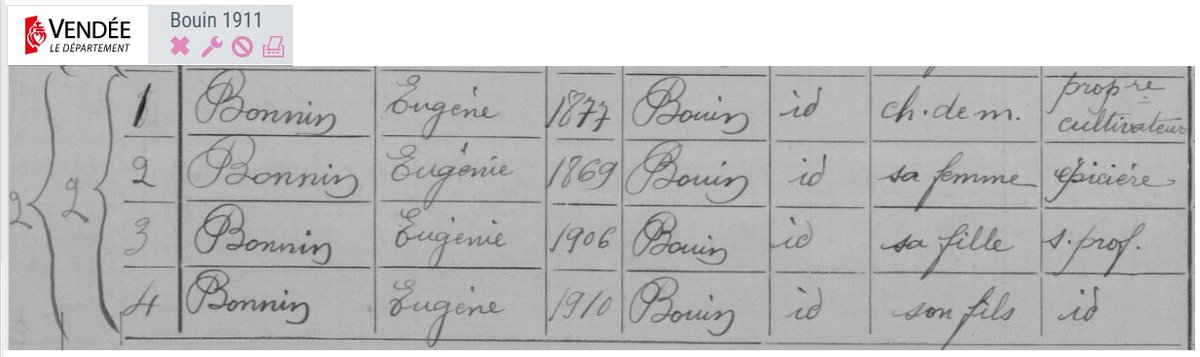 VENDÉE
LE DÉPARTEMENT
Bouin 1911
2 2
1 Bonnin Eugène 1877 Bouin id ch. de m. propre cultivateur
2 Bonnin Eugénie 1869 Bouin id sa femme épicière
3 Bonnin Eugénie 1906 Bouin id sa fille s. prof.
4 Bonnin Eugène 1910 Bouin id son fils id